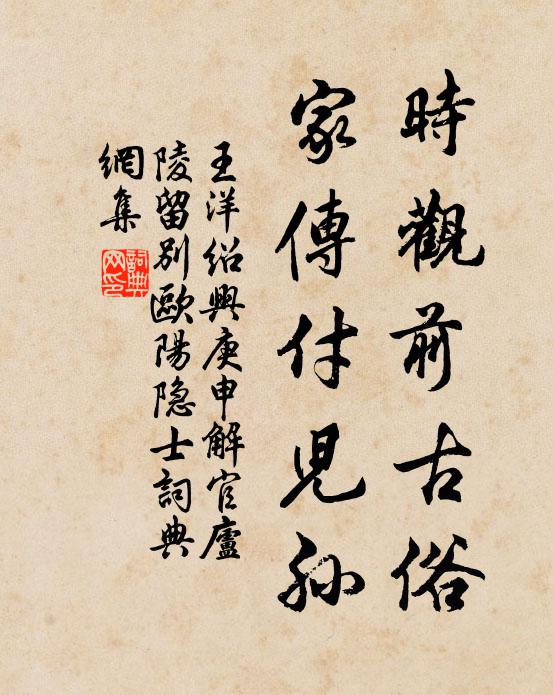 時觀前古俗
家傳付兒孫
王洋紹興庚申解官廬
陵留別歐陽隐士詞典
網集
詞典網印